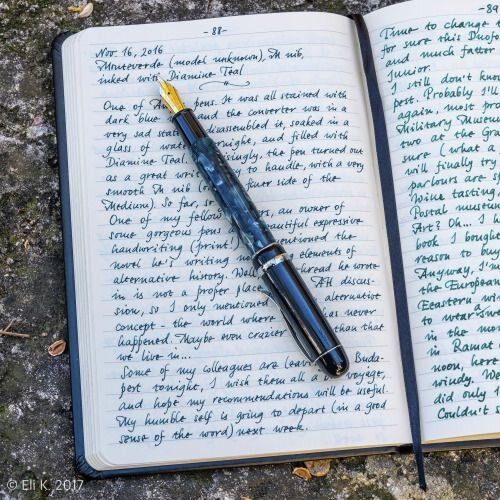 -88-
Nov. 16, 2016
Monteverde (model unknown), M nib,
inked with Diamine Teal
One of pens. It was all stained with
dark blue and the converter was in a
very sad state disassembled it, soaked in a
glass of water night, and filled with
Diamine Teal. ingly, the pen turned out
as a great writ to handle, with a very
smooth M nib ( finer side of the
Medium). So far, s
One of my fellow rs, an owner of
some gorgeous pens eautiful expressive
handwriting (print!) entioned the
novel he's writing no elements of
alternative history. Well thread he wrote
in is not a proper place AH discus-
sion, so I only mentioned alternative
concept - the world where has never
happened. Maybe even crazier than that
we live in...
Some of my colleagues are leav Buda-
pest tonight, I wish them all a voyage,
and hope my recommendations will be useful.
My humble self is going to depart (in a good
sense of the word) next week.
-89
Time to change
for sure this Duofo
and much fatter
Junior.
I still don't kno
pest. Probably I'll
again, most pro
Military Museum
two at the Gra
sure (what a
will finally try
parlours are s
Wine tasting
Postal museum
Art? Oh... I
book I bough
reason to buy
Anyway, I'm
the European
Eeastern w
to wear swea
in the mo
in Ramat
noon, here
windy. We
did only
Couldn't
© Eli K. 2017